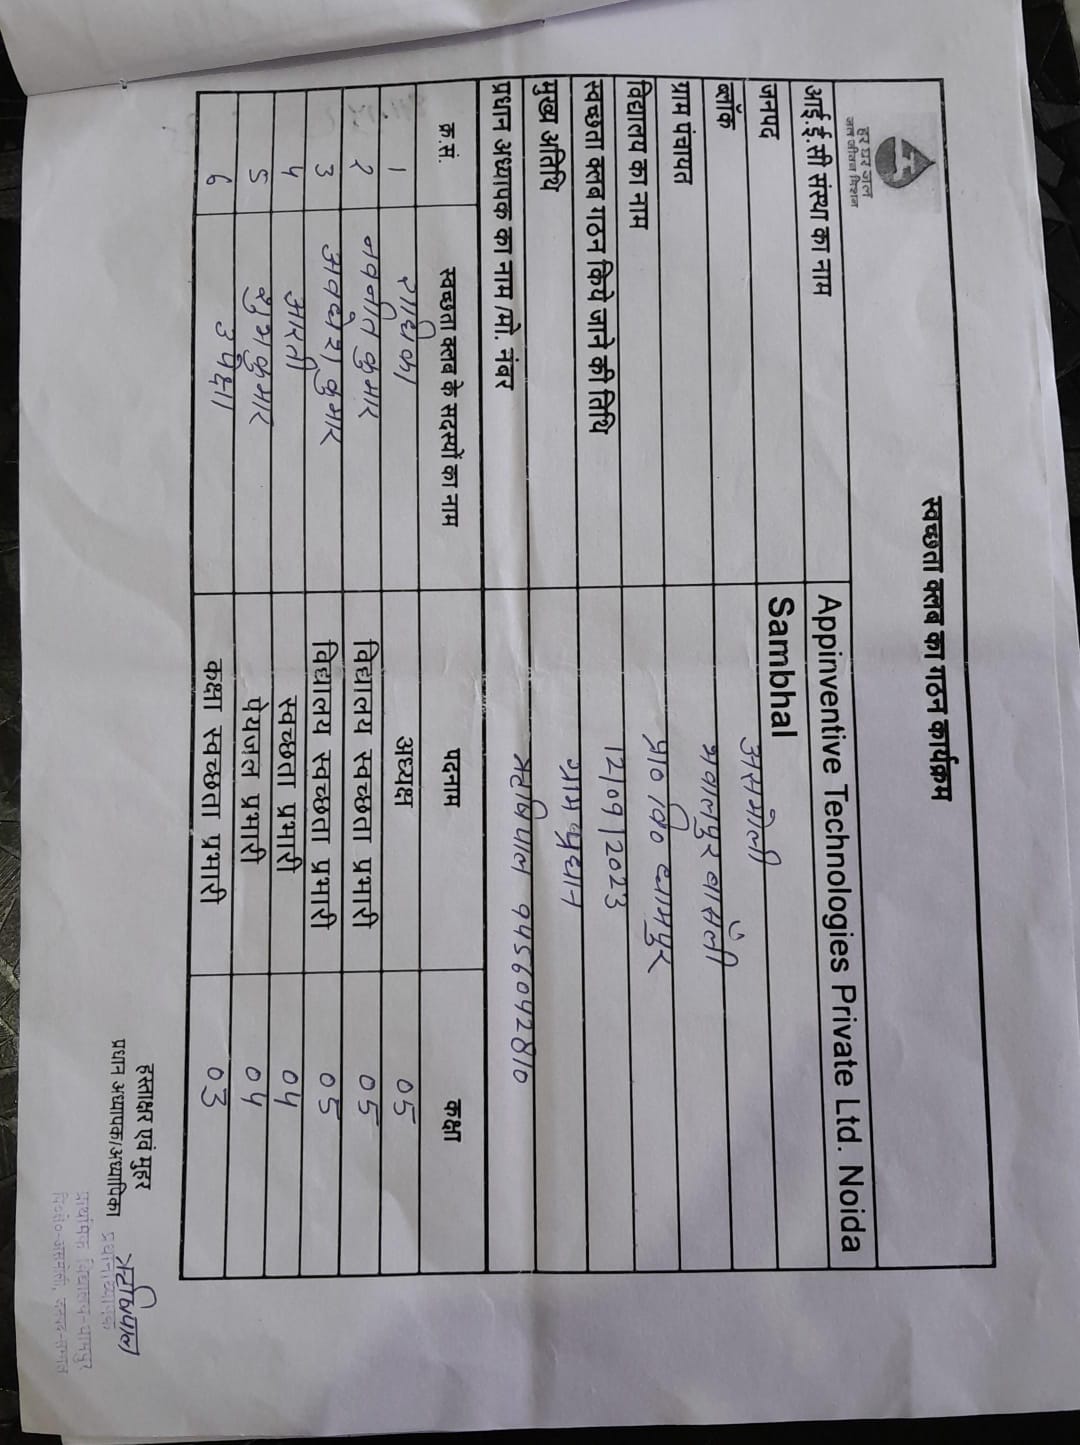 हर घर जल
जल जीवन मिशन
स्वच्छता क्लब का गठन कार्यक्रम
आई.ई.सी संस्था का नाम Appinventive Technologies Private Ltd. Noida
जनपद Sambhal
ब्लॉक असमोली
ग्राम पंचायत मवालपुर बासली
विद्यालय का नाम प्रा० वि० श्यामपुर
स्वच्छता क्लब गठन किये जाने की तिथि 12/09/2023
मुख्य अतिथि ग्राम प्रधान
प्रधान अध्यापक का नाम /मो. नंबर 9456092810
क्र.सं. स्वच्छता क्लब के सदस्यों का नाम पदनाम कक्षा
1 राधिका अध्यक्ष 05
2 नवनीत कुमार विद्यालय स्वच्छता प्रभारी 05
3 अवधेश कुमार विद्यालय स्वच्छता प्रभारी 05
4 आरती स्वच्छता प्रभारी 04
5 शुभ कुमार पेयजल प्रभारी 04
6 उपेक्षा कक्षा स्वच्छता प्रभारी 03
हस्ताक्षर एवं मुहर
प्रधान अध्यापक/अध्यापिका
प्रधानाध्यापक
प्राथमिक विद्यालय